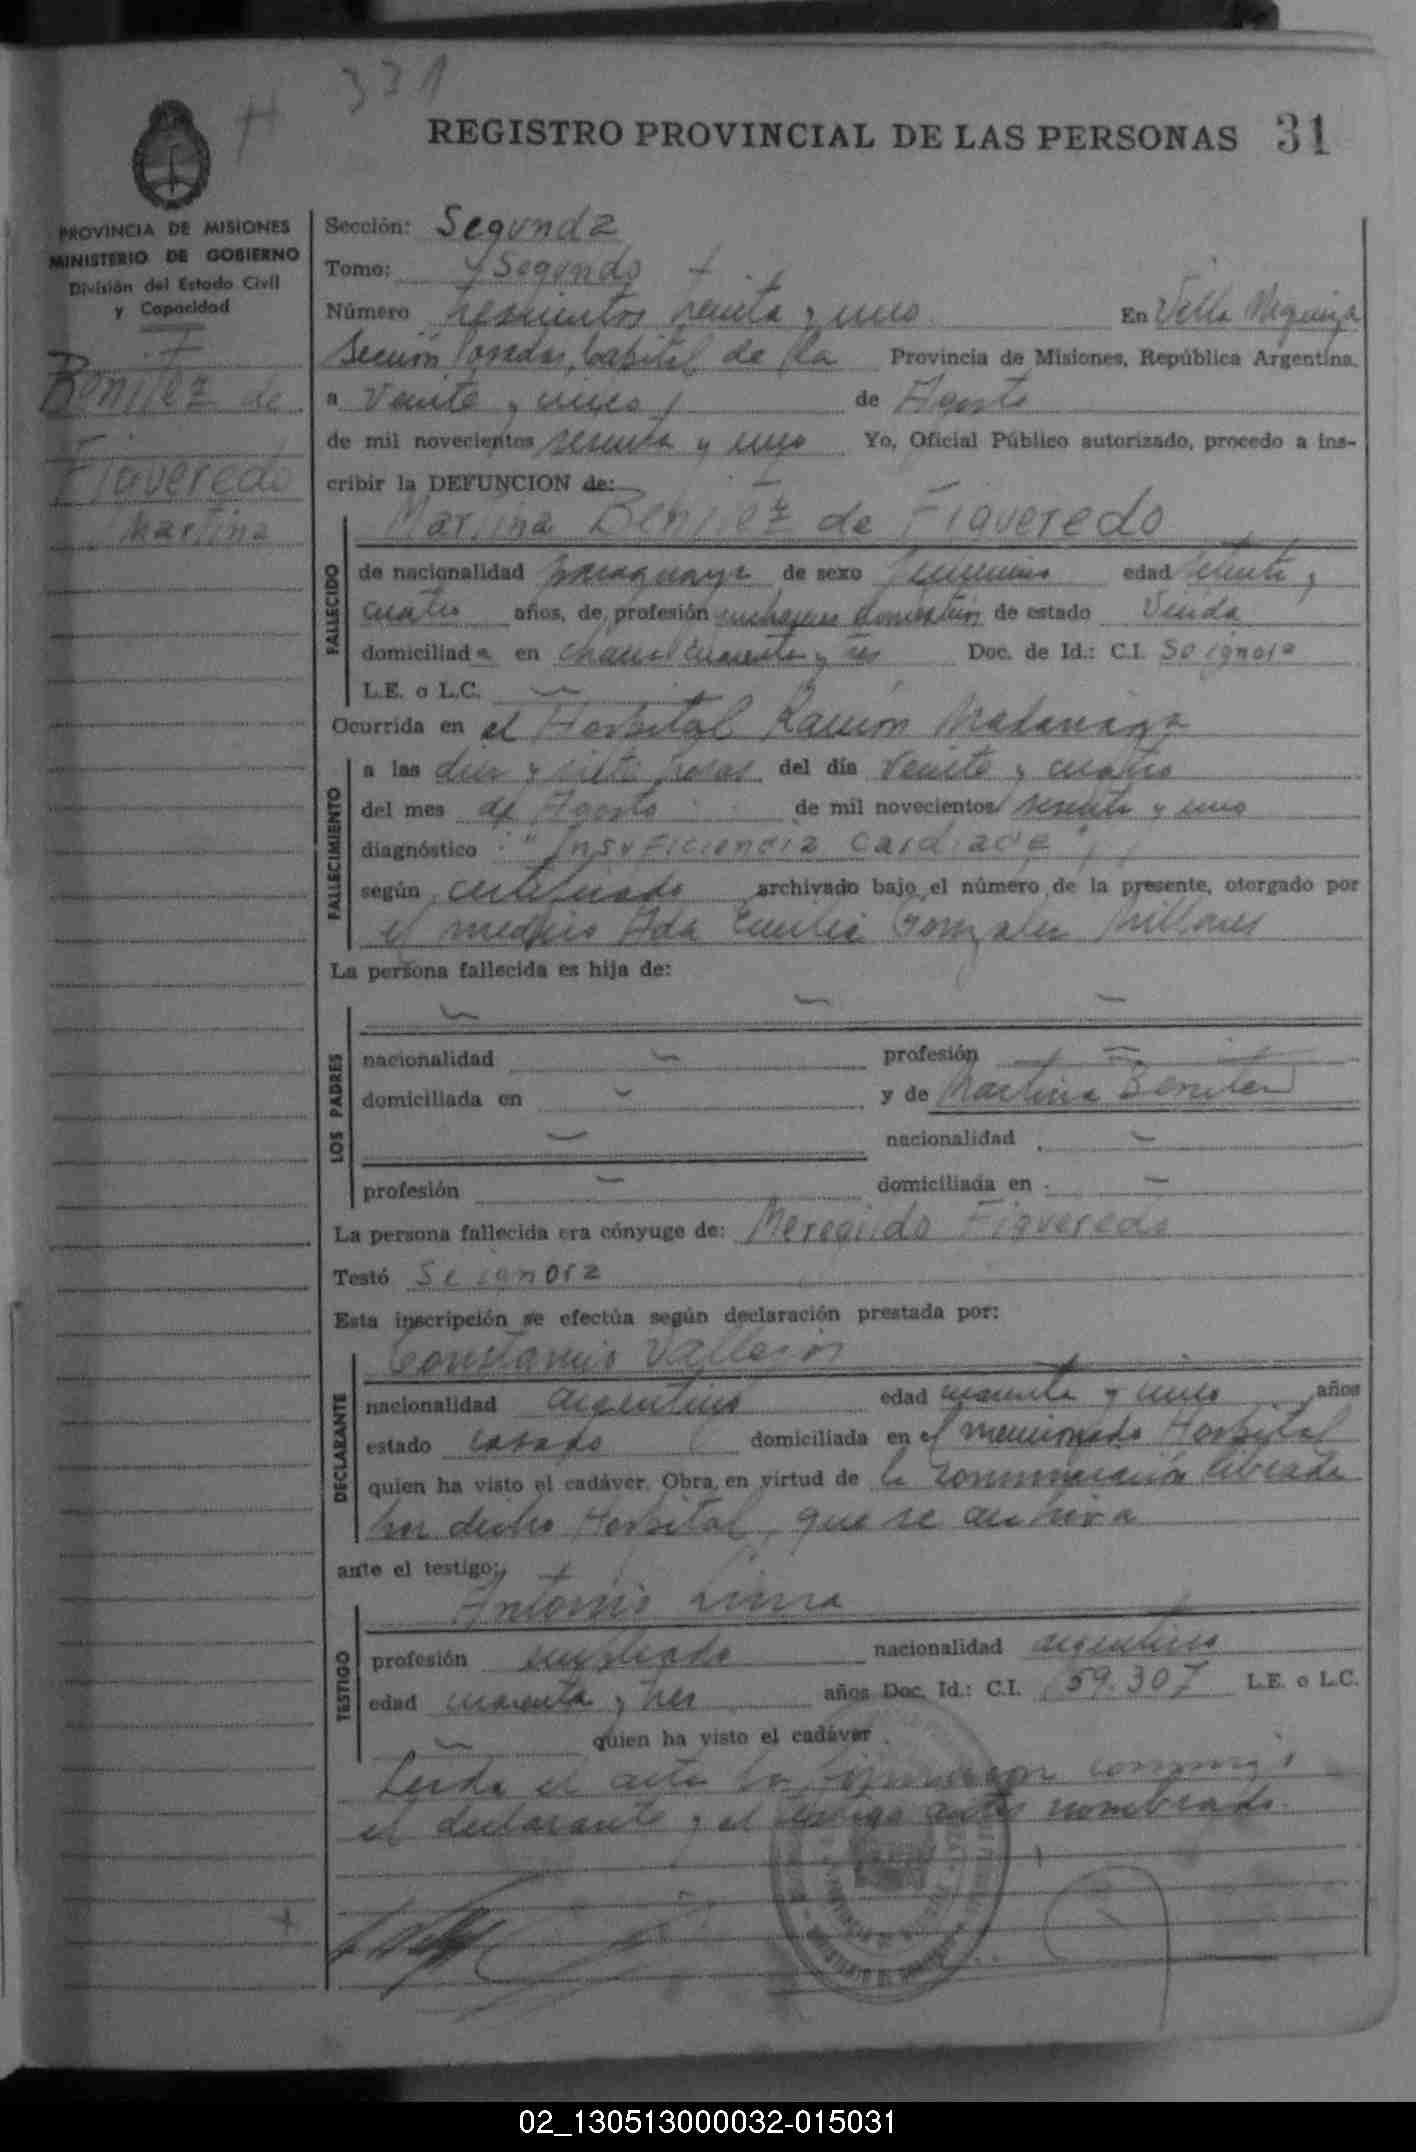 H 331
REGISTRO PROVINCIAL DE LAS PERSONAS 31
PROVINCIA DE MISIONES
MINISTERIO DE GOBIERNO
División del Estado Civil
y Capacidad
Benitez de
Figueredo
Martina
Sección: Segunda
Tomo: Segundo
Número trescientos treinta y uno En Villa
Sección Posadas, Capital de la Provincia de Misiones, República Argentina.
a veinte y cinco de Agosto
de mil novecientos sesenta y uno Yo, Oficial Público autorizado, procedo a ins-
cribir la DEFUNCION de:
Martina Benitez de Figueredo
FALLECIDO
de nacionalidad paraguaya de sexo femenino edad setenta y
cuatro años, de profesión quehaceres domésticos de estado Viuda
domiciliada en chacra cuarenta y tres Doc. de Id.: C.I. Se ignora
L.E. o L.C.
Ocurrida en el Hospital Ramón Madariaga
FALLECIMIENTO
a las diez y siete horas del día veinte y cuatro
del mes de Agosto de mil novecientos sesenta y uno
diagnóstico "Insuficiencia Cardiaca"
según certificado archivado bajo el número de la presente, otorgado por
el médico Ada Emilia Gonzalez Millares
La persona fallecida es hija de:
LOS PADRES
nacionalidad profesión
domiciliada en y de Martina Benitez
nacionalidad
profesión domiciliada en
La persona fallecida era cónyuge de: Meregildo Figueredo
Testó Se ignora
Esta inscripción se efectúa según declaración prestada por:
DECLARANTE
Constancio Vallejos
nacionalidad argentino edad cuarenta y cinco años
estado casado domiciliada en el mencionado Hospital
quien ha visto el cadáver. Obra en virtud de la comunicación librada
por dicho Hospital, que se archiva
ante el testigo:
TESTIGO
Antonio Lima
profesión empleado nacionalidad argentino
edad cuarenta y tres años Doc. Id.: C.I. 159.307 L.E. o L.C.
quien ha visto el cadáver
Leida el acta la firmaron conmigo
el declarante y el testigo antes nombrado.
02_130513000032-015031